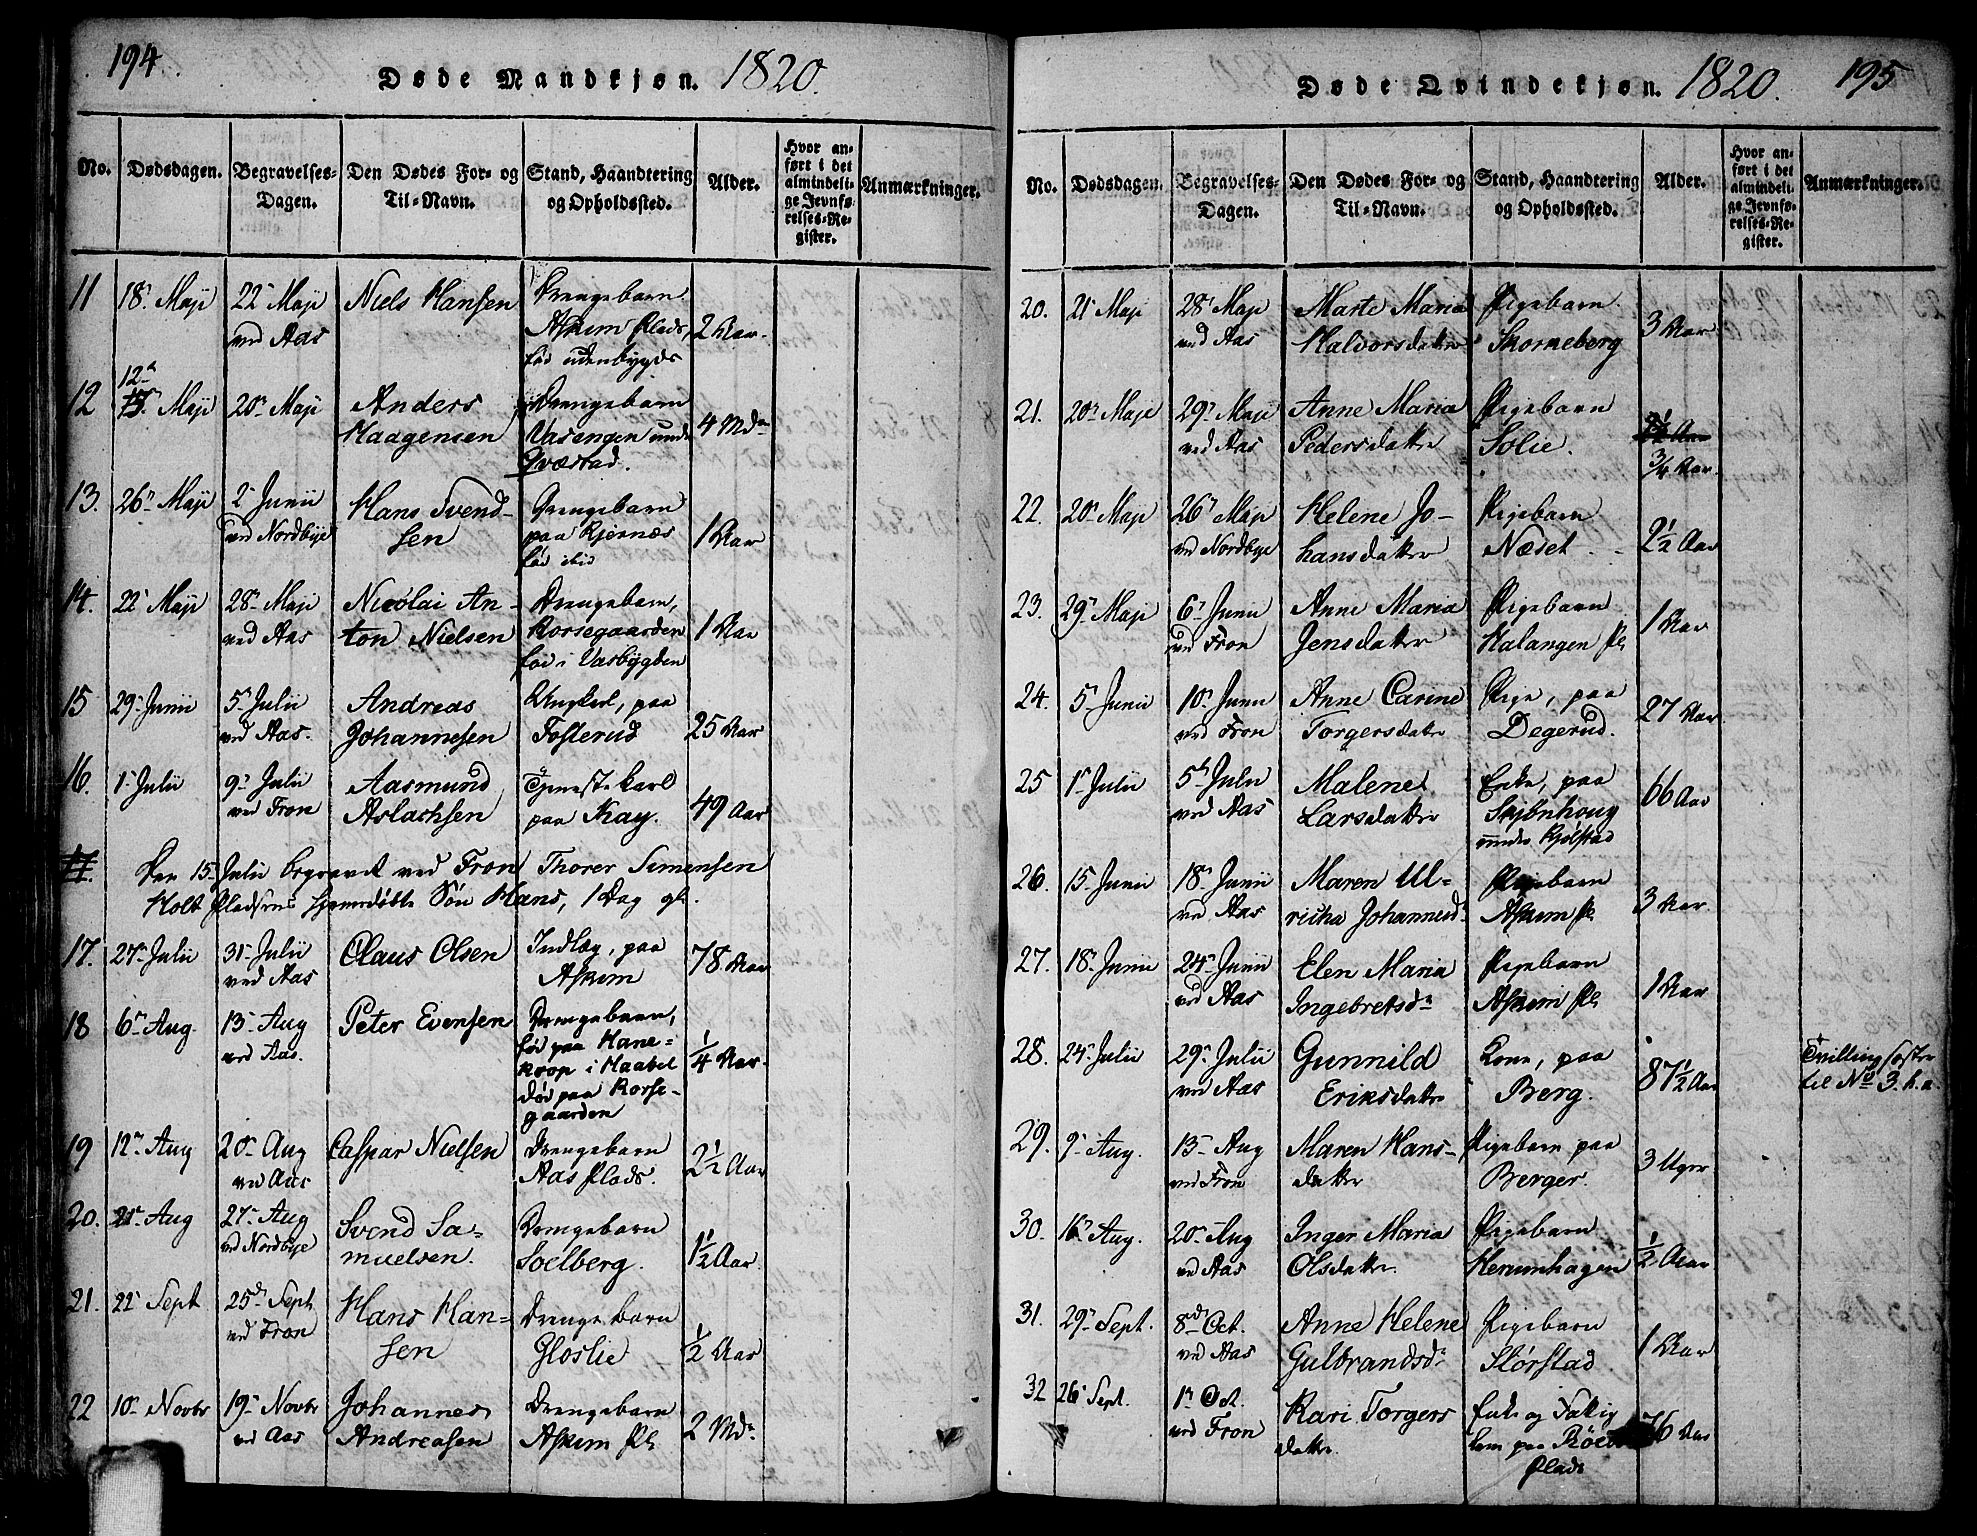 194.
Døde Mandkjøn. 1820.
No.
Dødsdagen.
Begravelses-Dagen.
Den Dødes For- og Til-Navn.
Stand, Haandtering og Opholdssted.
Alder.
Hvor anført i det almindelige Jevnførelses-Register.
Anmærkninger.
11 18. Maji 22 Maji ved Aas Niels Hansen Drengebarn Askim Plads, fød udenbygds 2 Aar.
12 12 Maji 20 Maji Anders Haagensen Drengebarn Vasengen under Qvæstad. 4 Md
13. 26 Maji 2 Junii ved Nordbye Hans Svendsen Drengebarn paa Kjernæs fød ibid 1 Aar
14. 22 Maji 28 Maji ved Aas Nicolai Anton Nielsen Drengebarn, Korsegaarden fød i Vasbygden 1 Aar
15 29 Junii 5 Julii ved Aas. Andreas Johannesen Ungkarl, paa Fosterud 25 Aar
16. 1 Julii 9 Julii ved Fron Aasmund Aslachsen Tjenestekarl paa Kay. 49 Aar
17. Den 15 Julii begravet ved Fron Thorer Simensen
Holt Pladsens hjemmedøbte Søn Hans, 1 Dag gl.
17. 27 Julii 31 Julii ved Aas Claus Olsen Indlæg, paa Askim 78 Aar
18 6 Aug. 13 Aug ved Aas. Peter Evensen Drengebarn, fød paa Hanekoop i Haabel død paa Korsegaarden 1/4 Aar.
19 12 Aug 20 Aug ved Aas Caspar Nielsen Drengebarn Aas Plads. 2 1/2 Aar
20. 21 Aug 27 Aug ved Nordbye Svend Samuelsen. Drengebarn Soelberg. 1 1/2 Aar
21. 22 Sept 25 Sept ved Fron Hans Hansen Drengebarn Gloslie 1/2 Aar
22 10 Novbr 19 Novbr ved Aas Johannes Andreasen Drengebarn Askim Pl 2 Md
Døde Qvindekjøn. 1820. 195
No.
Dødsdagen.
Begravelses-Dagen.
Den Dødes For- og Til-Navn.
Stand, Haandtering og Opholdssted.
Alder.
Hvor anført i det almindelige Jevnførelses-Register.
Anmærkninger.
20. 21 Maji 28 Maji ved Aas Marte Maria Halvorsdatter Pigebarn Skorneberg 3 Aar
21. 20 Maji 29 Maji ved Aas Anne Maria Pedersdatter Pigebarn Solie. 3/4 Aar.
22. 20 Maji 26 Maji ved Nordbye Helene Johansdatter Pigebarn Næset 2 1/2 Aar
23. 29 Maji 6 Junii ved Fron Anne Maria Jensdatter Pigebarn Halangen Pl 1 Aar
24. 5 Junii 10 Junii ved Fron Anne Carine Torgersdatr Pige, paa Degerud. 27 Aar
25 1 Julii 5 Julii ved Aas Malene Larsdatter Enke, paa Skjønhoug under Kjølstad 66 Aar
26. 15 Junii 18 Junii ve Aas Maren Ulricha Johannesd Pigebarn Askim Pl 3 Aar
27. 18 Junii 24 Junii ved Aas Elen Maria Ingebretsd Pigebarn Askim Pl 1 Aar
28. 24 Julii 29 Julii ved Aas Gunnild Eriksdatter Kone, paa Berg. 87 1/2 Aar Tvillingsøster til No 3. h. a.
29. 9 Aug. 13 Aug ved Fron Maren Hansdatter Pigebarn paa Berger 3 Uger
30. 16 Aug. 20 Aug ved Aas Inger Maria Olsdatter. Pigebarn Herumhagen 1/2 Aar
31. 29 Sept. 8 Oct. ved Aas Anne Helene Gulbrandsd Pigebarn Storstad 1 Aar
32 26 Sept. 1 Oct. ved Fron Kari Torgersdatter. Enke og Fattiglem paa Plads 76 Aar